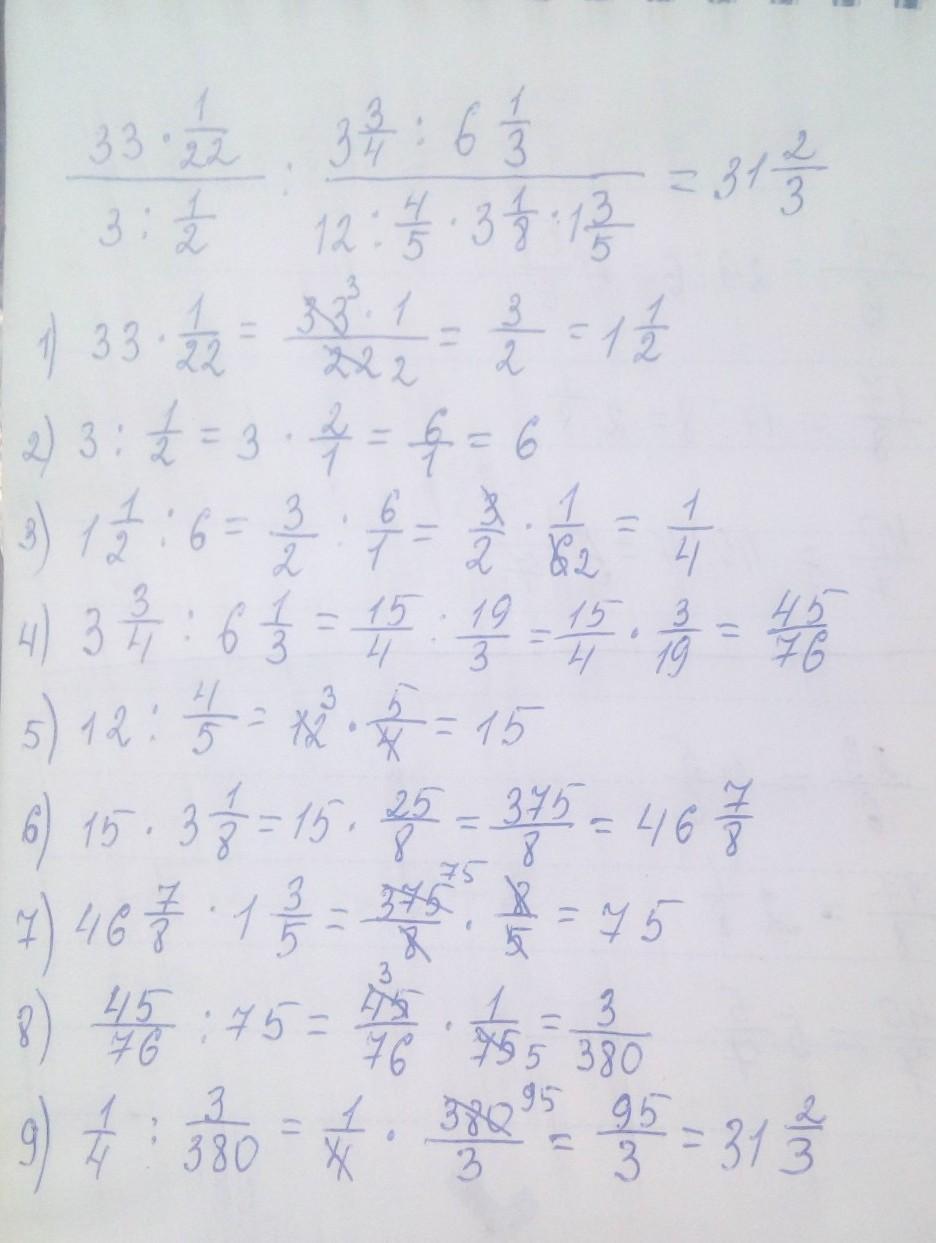 (33 · 1/22)/(3 : 1/2) : (3 3/4 : 6 1/3)/(12 : 4/5 · 3 1/8 · 1 3/5) = 31 2/3
1) 33 · 1/22 = (33 3 · 1)/(22 2) = 3/2 = 1 1/2
2) 3 : 1/2 = 3 · 2/1 = 6/1 = 6
3) 1 1/2 : 6 = 3/2 : 6/1 = 3/2 · 1/6 2 = 1/4
4) 3 3/4 : 6 1/3 = 15/4 : 19/3 = 15/4 · 3/19 = 45/76
5) 12 : 4/5 = 12 3 · 5/4 = 15
6) 15 · 3 1/8 = 15 · 25/8 = 375/8 = 46 7/8
7) 46 7/8 · 1 3/5 = 375 75/8 · 8/5 = 75
8) 45/76 : 75 = 45 3/76 · 1/75 5 = 3/380
9) 1/4 : 3/380 = 1/4 · 380 95/3 = 95/3 = 31 2/3